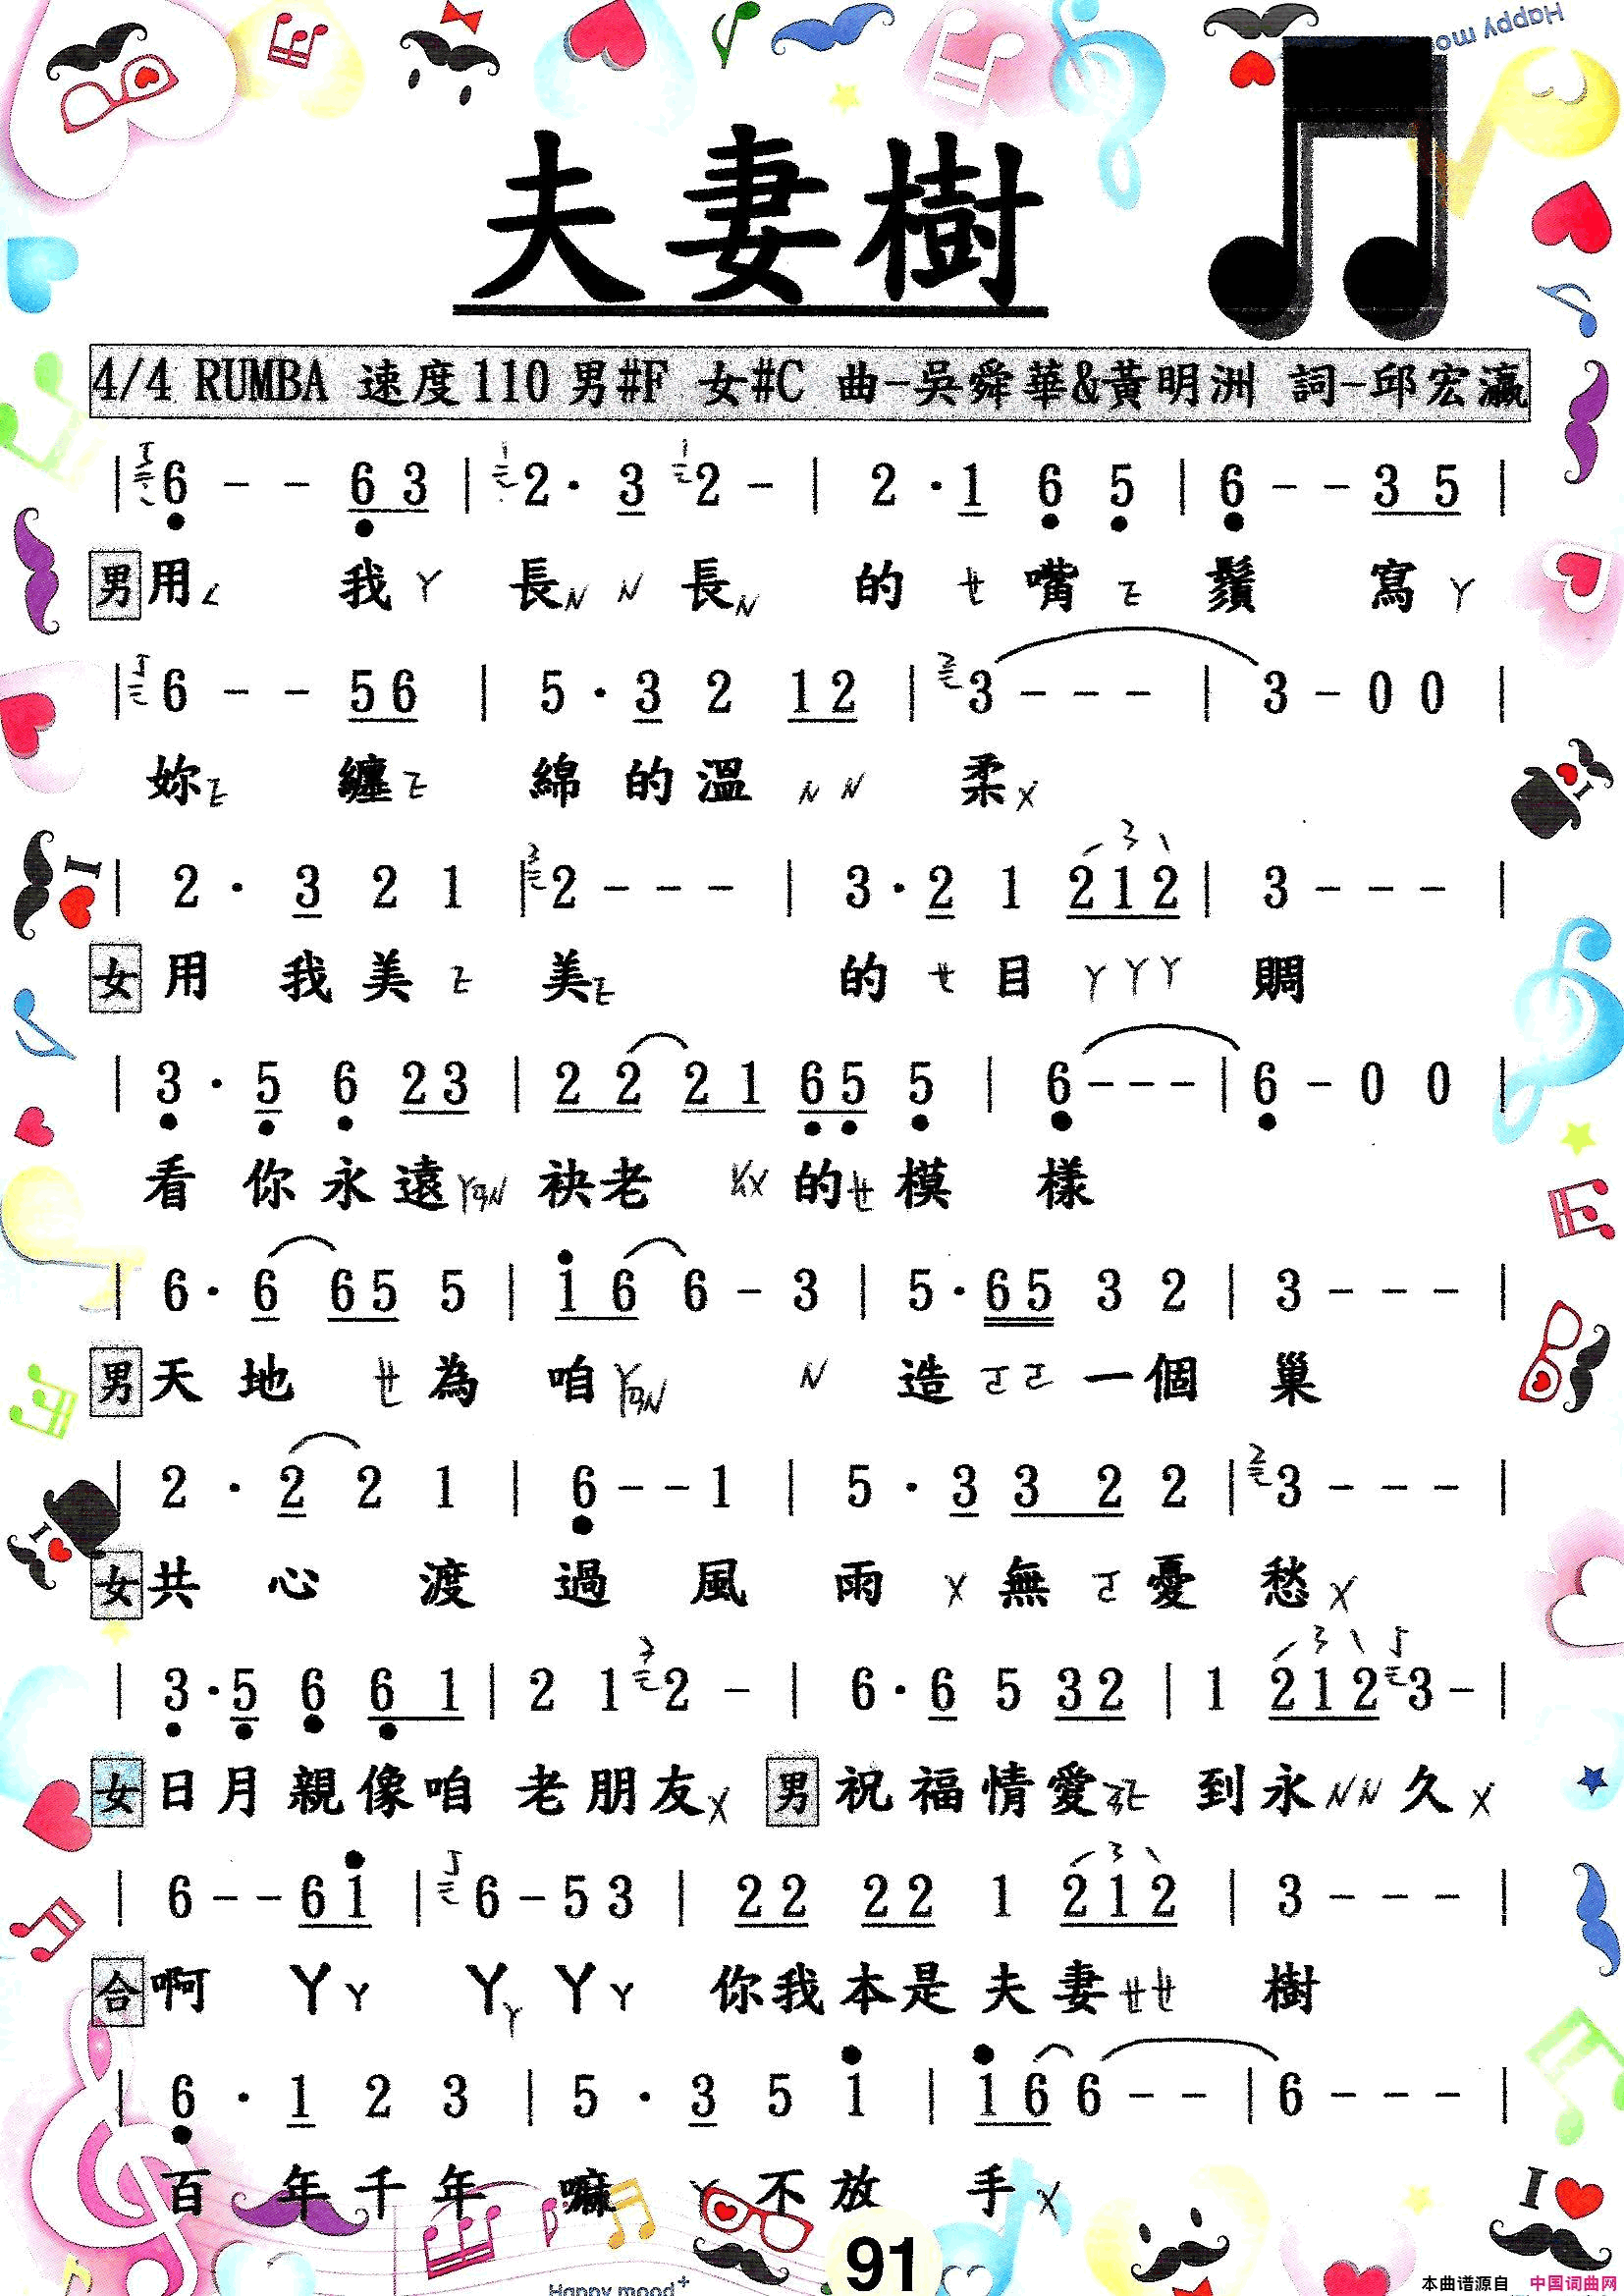 Happy mo
夫妻樹
4/4 RUMBA 速度110 男#F 女#C 曲-吳舜華&黃明洲 詞-邱宏瀛
| 6 - - 6 3 | 2 · 3 2 - | 2 · 1 6 5 | 6 - - 3 5 |
男 用ㄑ 我 ㄚ 長ㄣ ㄣ 長ㄣ 的 ㄝ 嘴 ㄛ 鬚 寫 ㄚ
| 6 - - 5 6 | 5 · 3 2 1 2 | 3 - - - | 3 - 0 0 |
妳 纏 綿 的 溫 ㄣ ㄣ 柔ㄨ
I
| 2 · 3 2 1 | 2 - - - | 3 · 2 1 2 1 2 | 3 - - - |
女 用 我 美 美 的 ㄝ 目 ㄚ ㄚ ㄚ 賙
| 3 · 5 6 2 3 | 2 2 2 1 6 5 5 | 6 - - - | 6 - 0 0 |
看 你 永 遠 袂 老 的 ㄝ 模 樣
| 6 · 6 6 5 5 | 1 6 6 - 3 | 5 · 6 5 3 2 | 3 - - - |
男 天 地 ㄝ 為 咱 ㄣ 造 ㄛ ㄛ 一 個 巢
| 2 · 2 2 1 | 6 - - 1 | 5 · 3 3 2 2 | 3 - - - |
女 共 心 渡 過 風 雨 ㄨ 無 ㄛ 憂 愁 ㄨ
| 3 · 5 6 6 1 | 2 1 2 - | 6 · 6 5 3 2 | 1 2 1 2 3 - |
女 日 月 親 像 咱 老 朋 友 ㄨ 男 祝 福 情 愛 到 永 ㄣ ㄣ 久 ㄨ
| 6 - - 6 1 | 6 - 5 3 | 2 2 2 2 1 2 1 2 | 3 - - - |
合 啊 ㄚ ㄚ ㄚ ㄚ ㄚ ㄚ 你 我 本 是 夫 妻 ㄝ ㄝ 樹
| 6 · 1 2 3 | 5 · 3 5 1 | 1 6 6 - - | 6 - - - |
百 年 千 年 嘛 ㄚ 不 放 手 ㄨ
I
Happy mood+
91
本曲谱源自 中国词曲网